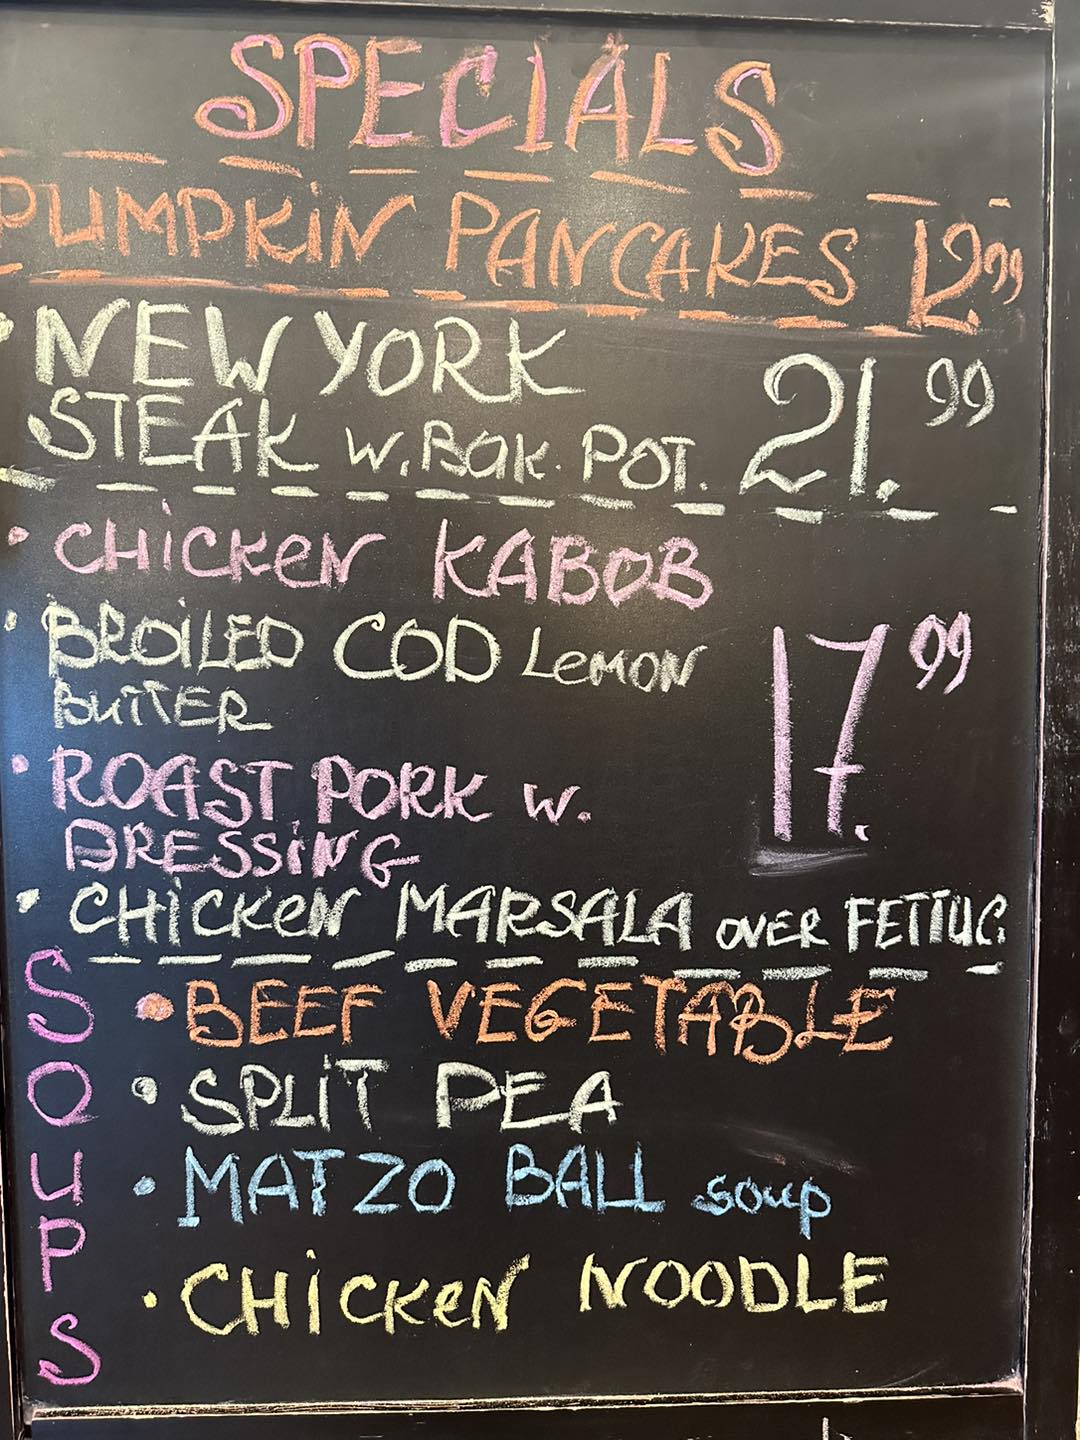 SPECIALS
PUMPKIN PANCAKES 12.99
• NEW YORK
STEAK W. BAK. POT. 21.99
• CHICKEN KABOB
• BROILED COD LEMON
BUTTER
17.99
• ROAST PORK W.
DRESSING
• CHICKEN MARSALA OVER FETTUC.
SOUPS
• BEEF VEGETABLE
• SPLIT PEA
• MATZO BALL soup
• CHICKEN NOODLE